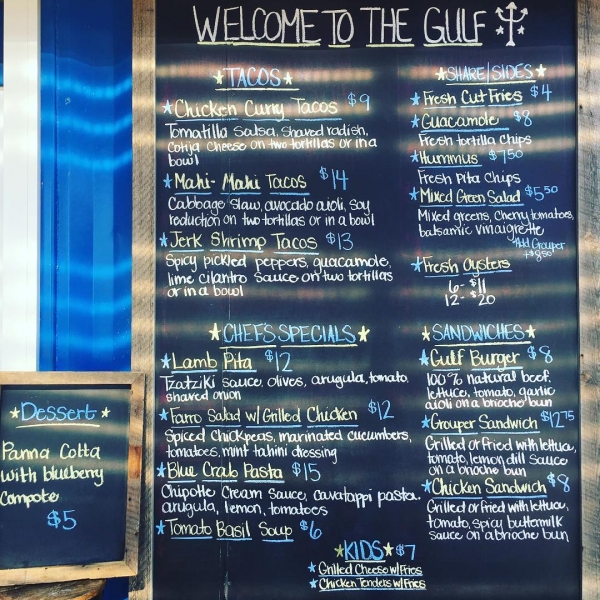 WELCOME TO THE GULF
TACOS
Chicken Curry Tacos $9
Tomatilla Salsa, shaved radish,
Cotija Cheese on two tortillas or in a
bowl
Mahi-Mahi Tacos $14
Cabbage Slaw, avocado aioli, soy
reduction on two tortillas or in a bowl
Jerk Shrimp Tacos $13
Spicy pickled peppers, guacamole,
lime cilantro sauce on two tortillas
or in a bowl
CHEF'S SPECIALS
Lamb Pita $12
Tzatziki sauce, olives, arugula, tomato,
shaved onion
Farro Salad w/ Grilled Chicken $12
Spiced chickpeas, marinated cucumbers,
tomatoes, mint tahini dressing
Blue Crab Pasta $15
Chipotle Cream sauce, cavatappi pasta,
arugula, lemon, tomatoes
Tomato Basil Soup $6
SHARE/SIDES
Fresh Cut Fries $4
Guacamole $8
Fresh tortilla chips
Hummus $7.50
Fresh Pita Chips
Mixed Green Salad $5.50
Mixed greens, Cherry tomatoes,
balsamic vinaigrette
*Add Grouper
+$8.50
Fresh Oysters
6- $11
12- $20
SANDWICHES
Gulf Burger $8
100% natural beef,
lettuce, tomato, garlic
aioli on a brioche bun
Grouper Sandwich $12.75
Grilled or Fried with lettuce,
tomato, lemon dill sauce
on a brioche bun
Chicken Sandwich $8
Grilled or fried with lettuce,
tomato, spicy buttermilk
sauce on a brioche bun
KIDS $7
Grilled Cheese w/Fries
Chicken Tenders w/Fries
Dessert
Panna Cotta
with blueberry
Compote
$5